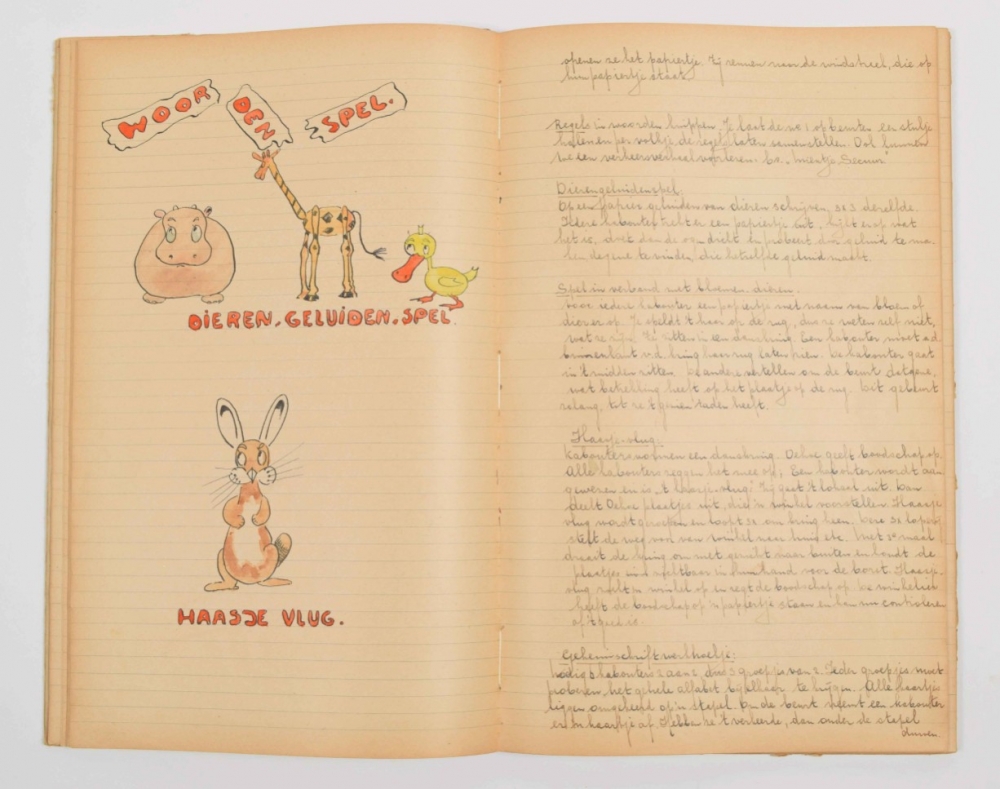 WOOR
DEN
SPEL.
DIEREN.GELUIDEN.SPEL.
HAASJE VLUG.
openen ze het papiertje. Zij rennen naar de windstreek, die op
hun papiertje staat.
Regels in woorden knippen. Je laat de no 1 op beurten een stukje
halen en per volkje de regels laten samenstellen. Ook kunnen
we een verkeersverhaal voorlezen: bv.
Dierengeluidenspel.
Op een papier geluiden van dieren schrijven, ze 3 dezelfde.
Iedere kabouter trekt er een papiertje uit, kijkt erop wat
het is, doet dan de oogen dicht en probeert door geluid te ma-
ken degene te vinden, die hetzelfde geluid maakt.
Spel in verband met bloemen. dieren.
Voor iedere kabouter een papiertje met naam van bloem of
dier er op. Je speldt 't haar op de rug, dus ze weten zelf niet,
wat ze zijn. Ze zitten in een kring. Een kabouter moet ad
binnenkant v.d. kring haar rug laten zien. De kabouter gaat
in 't midden zitten. De anderen vertellen om de beurt datgene,
wat betrekking heeft op het plaatje op de rug. Dit gebeurt
zolang, tot ze 't geraden heeft.
Haasje-vlug.
Kabouters vormen een kring. Oehoe geeft boodschap op.
Alle kabouters zeggen het mee op. Een kabouter wordt aan
gewezen en is 't haasje vlug. Zij gaat 't lokaal uit. Dan
deelt Oehoe plaatjes uit, die 'n winkel voorstellen. Haasje
vlug wordt geroepen en loopt 3x om kring heen.
draait de kring om met gezicht naar buiten en houdt de
plaatjes
vlug zoekt zn winkel op en zegt de boodschap op. De winkelier
heeft de boodschap op 'n papiertje staan en kan nu controleren
of 't goed is.
Geheimschriftwerkhoekje:
nodig kabouters 2 aan 2 dus 3 groepjes van 2. Ieder groepje moet
proberen, het gehele alfabet bij elkaar te krijgen. Alle kaartjes
liggen omgekeerd op 'n stapel. Om de beurt neemt een kabouter
er een kaartje af. Hebben ze 't verkeerde, dan onder de stapel
duwen.